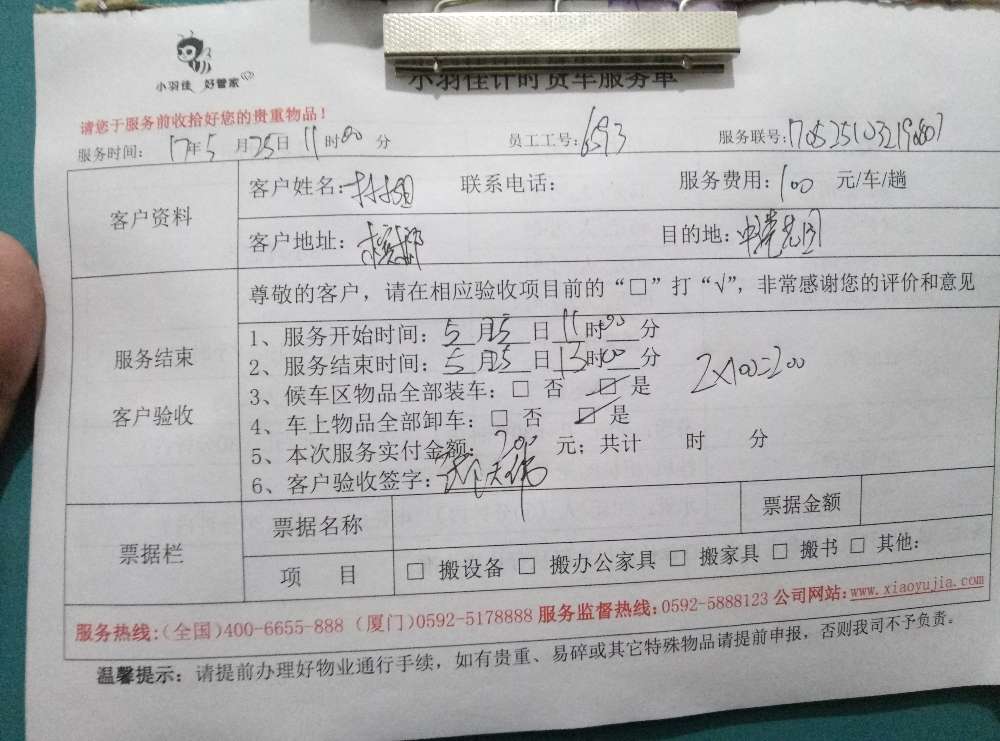 小羽佳 好管家
小羽佳计时货车服务单
请您于服务前收拾好您的贵重物品！
服务时间： 17年5月25日11时00分 员工工号：6593 服务联号：
客户资料 客户姓名： 联系电话： 服务费用：100 元/车/趟
客户地址： 目的地：
服务结束
客户验收
尊敬的客户，请在相应验收项目前的“□”打“√”，非常感谢您的评价和意见
1、服务开始时间：5月25日11时00分
2、服务结束时间：5月25日13时00分
3、候车区物品全部装车：□ 否 ☑ 是
2×100=200
4、车上物品全部卸车：□ 否 ☑ 是
5、本次服务实付金额：200 元；共计 时 分
6、客户验收签字：
票据栏 票据名称 票据金额
项 目 □ 搬设备 □ 搬办公家具 □ 搬家具 □ 搬书 □ 其他：
服务热线：（全国）400-6655-888（厦门）0592-5178888 服务监督热线：0592-5888123 公司网站：www.xiaoyujia.com
温馨提示：请提前办理好物业通行手续，如有贵重、易碎或其它特殊物品请提前申报，否则我司不予负责。